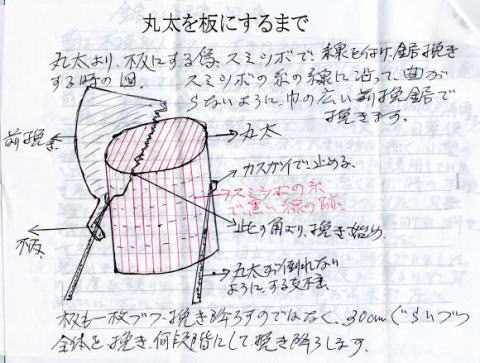 丸太を板にするまで
丸太より、板にする為、スミツボで線を付け、鋸挽き
する時の図。
スミツボの糸の線に沿って、曲が
らないように、巾の広い前挽鋸で
挽きます。
前挽き
丸太
カスガイで止める。
スミツボの糸
で黒い線の跡
此の角より、挽き始め
板
丸太が倒れない
ようにする支柱
板も一枚づつ挽き降ろすのではなく、30cmぐらいづつ
全体を挽き、何段階にして挽き降ろします。